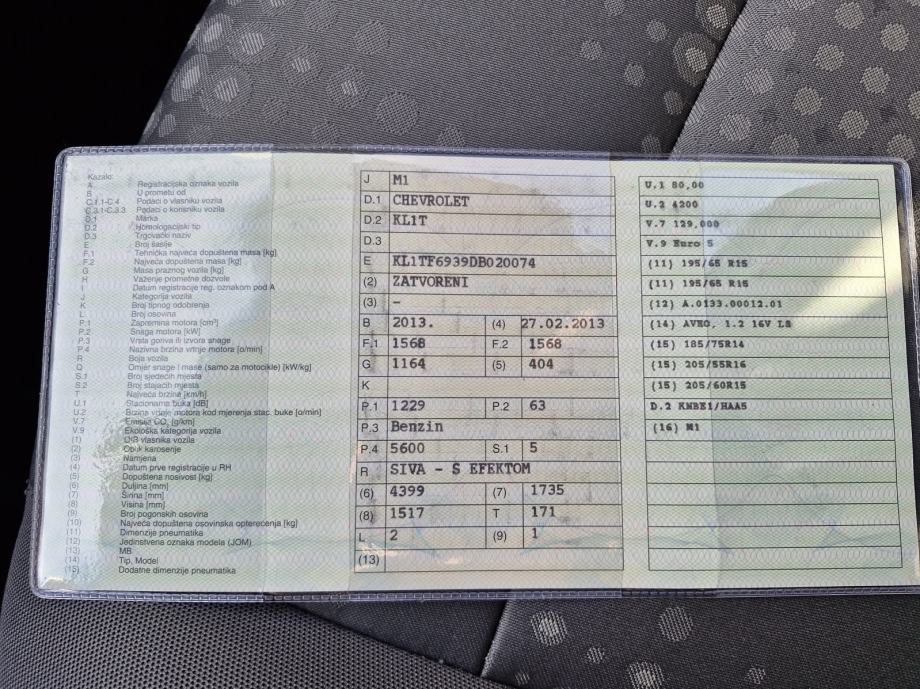 Kazalo:
A Registracijska oznaka vozila
B U prometu od
C.1.1-C.4 Podaci o vlasniku vozila
C.3.1-C.3.3 Podaci o korisniku vozila
D.1 Marka
D.2 Homologacijski tip
D.3 Trgovački naziv
E Broj šasije
F.1 Tehnička najveća dopuštena masa [kg]
F.2 Najveća dopuštena masa [kg]
G Masa praznog vozila [kg]
H Važenje prometne dozvole
I Datum registracije reg. oznakom pod A
J Kategorija vozila
K Broj tipnog odobrenja
L Broj osovina
P.1 Zapremina motora [cm³]
P.2 Snaga motora [kW]
P.3 Vrsta goriva ili izvora snage
P.4 Nazivna brzina vrtnje motora [o/min]
R Boja vozila
Q Omjer snage i mase (samo za motocikle) [kW/kg]
S.1 Broj sjedećih mjesta
S.2 Broj stajaćih mjesta
T Najveća brzina [km/h]
U.1 Stacionarna buka [dB]
U.2 Brzina vrtnje motora kod mjerenja stac. buke [o/min]
V.7 Emisija CO₂ [g/km]
V.9 Ekološka kategorija vozila
(1) OIB vlasnika vozila
(2) Oblik karoserije
(3) Namjena
(4) Datum prve registracije u RH
(5) Dopuštena nosivost [kg]
(6) Duljina [mm]
(7) Širina [mm]
(8) Visina [mm]
(9) Broj pogonskih osovina
(10) Najveća dopuštena osovinska opterećenja [kg]
(11) Dimenzije pneumatika
(12) Jedinstvena oznaka modela (JOM)
(13) MB
(14) Tip, Model
(15) Dodatne dimenzije pneumatika
J M1
D.1 CHEVROLET
D.2 KL1T
D.3
E KL1TF6939DB020074
(2) ZATVORENI
(3) -
B 2013. (4) 27.02.2013
F.1 1568 F.2 1568
G 1164 (5) 404
K
P.1 1229 P.2 63
P.3 Benzin
P.4 5600 S.1 5
R SIVA - S EFEKTOM
(6) 4399 (7) 1735
(8) 1517 T 171
L 2 (9) 1
(13)
U.1 80,00
U.2 4200
V.7 129,000
V.9 Euro 5
(11) 195/65 R15
(11) 195/65 R15
(12) A.0133.00012.01
(14) AVEO, 1.2 16V LS
(15) 185/75R14
(15) 205/55R16
(15) 205/60R15
D.2 KNBE1/HAA5
(16) M1